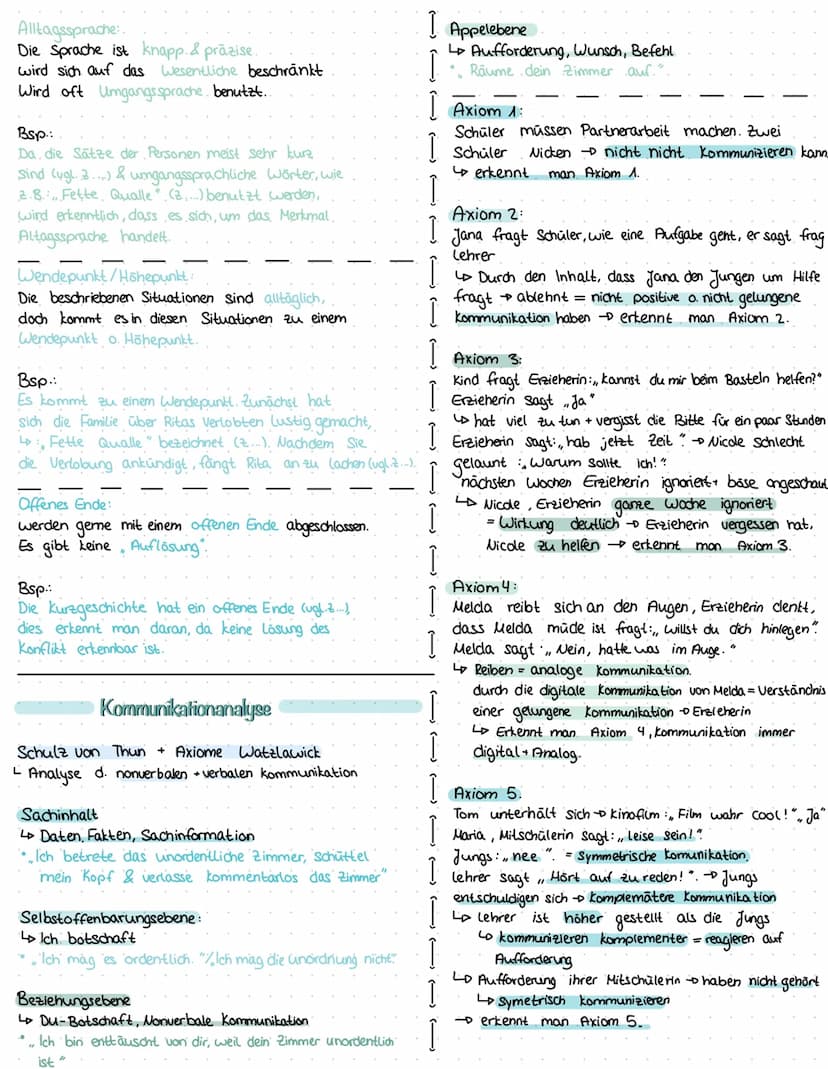 Alltagssprache:
Die Sprache ist knapp & präzise.
wird sich auf das Wesentliche beschränkt
Wird oft Umgangssprache benutzt.
Bsp.:
Da die Sätze der Personen meist sehr kurz
sind (vgl. Z...) & umgangssprachliche Wörter, wie
z.B.: „Fette Qualle" (Z...) benutzt werden,
wird erkenntlich, dass es sich, um das Merkmal
Altagssprache handelt.
Wendepunkt/Höhepunkt:
Die beschriebenen Situationen sind alltäglich,
doch kommt es in diesen Situationen zu einem
Wendepunkt o. Höhepunkt.
Bsp.:
Es kommt zu einem Wendepunkt. Zunächst hat
sich die Familie über Ritas Verlobten lustig gemacht,
↳ : „Fette Qualle" bezeichnet (Z...). Nachdem Sie
die Verlobung ankündigt, fängt Rita an zu lachen (vgl. Z...).
Offenes Ende:
werden gerne mit einem offenen Ende abgeschlossen.
Es gibt keine „Auflösung".
Bsp.:
Die Kurzgeschichte hat ein offenes Ende (vgl. Z...),
dies erkennt man daran, da keine Lösung des
Konflikt erkennbar ist.
Kommunikationanalyse
Schulz von Thun + Axiome Watzlawick
└ Analyse d. nonverbalen + verbalen Kommunikation
Sachinhalt
↳ Daten, Fakten, Sachinformation
* „Ich betrete das unordentliche Zimmer, schüttel
mein Kopf & verlasse kommentarlos das Zimmer"
Selbstoffenbarungsebene:
↳ Ich botschaft
* „Ich mag es ordentlich." / „Ich mag die unordnung nicht"
Beziehungsebene
↳ Du-Botschaft, Nonverbale Kommunikation
* „Ich bin enttäuscht von dir, weil dein Zimmer unordentlich
ist"
Appelebene
↳ Aufforderung, Wunsch, Befehl
* „Räume dein Zimmer auf."
Axiom 1:
Schüler müssen Partnerarbeit machen. Zwei
Schüler Nicken → nicht nicht Kommunizieren kann
↳ erkennt man Axiom 1.
Axiom 2:
Jana fragt Schüler, wie eine Aufgabe geht, er sagt frag
Lehrer
↳ Durch den Inhalt, dass Jana den Jungen um Hilfe
fragt → ablehnt = nicht positive o. nicht gelungene
Kommunikation haben → erkennt man Axiom 2.
Axiom 3:
Kind fragt Erzieherin: „kannst du mir beim Basteln helfen?"
Erzieherin sagt „Ja"
↳ hat viel zu tun + vergisst die Bitte für ein paar Stunden
Erzieherin sagt: „hab jetzt Zeit". → Nicole schlecht
gelaunt : „Warum sollte ich!"
nächsten Wochen Erzieherin ignoriert + böse angeschaut
↳ Nicole, Erzieherin ganze Woche ignoriert
= Wirkung deutlich → Erzieherin vergessen hat,
Nicole zu helfen → erkennt man Axiom 3.
Axiom 4:
Melda reibt sich an den Augen, Erzieherin denkt,
dass Melda müde ist fragt: „willst du dich hinlegen".
Melda sagt: „Nein, hatte was im Auge."
↳ Reiben = analoge Kommunikation.
durch die digitale Kommunikation von Melda = Verständnis
einer gelungene Kommunikation → Erzieherin
↳ Erkennt man Axiom 4, Kommunikation immer
digital + Analog.
Axiom 5.
Tom unterhält sich → Kinofilm: „Film wahr cool!" „Ja"
Maria, Mitschülerin sagt: „leise sein!".
Jungs: „nee". = Symmetrische Komunikation.
Lehrer sagt „Hört auf zu reden!". → Jungs
entschuldigen sich → Komplemätere Kommunikation
↳ Lehrer ist höher gestellt als die Jungs
↳ kommunizieren komplementer = reagieren auf
Aufforderung
↳ Aufforderung ihrer Mitschülerin → haben nicht gehört
↳ Symetrisch kommunizieren
→ erkennt man Axiom 5.